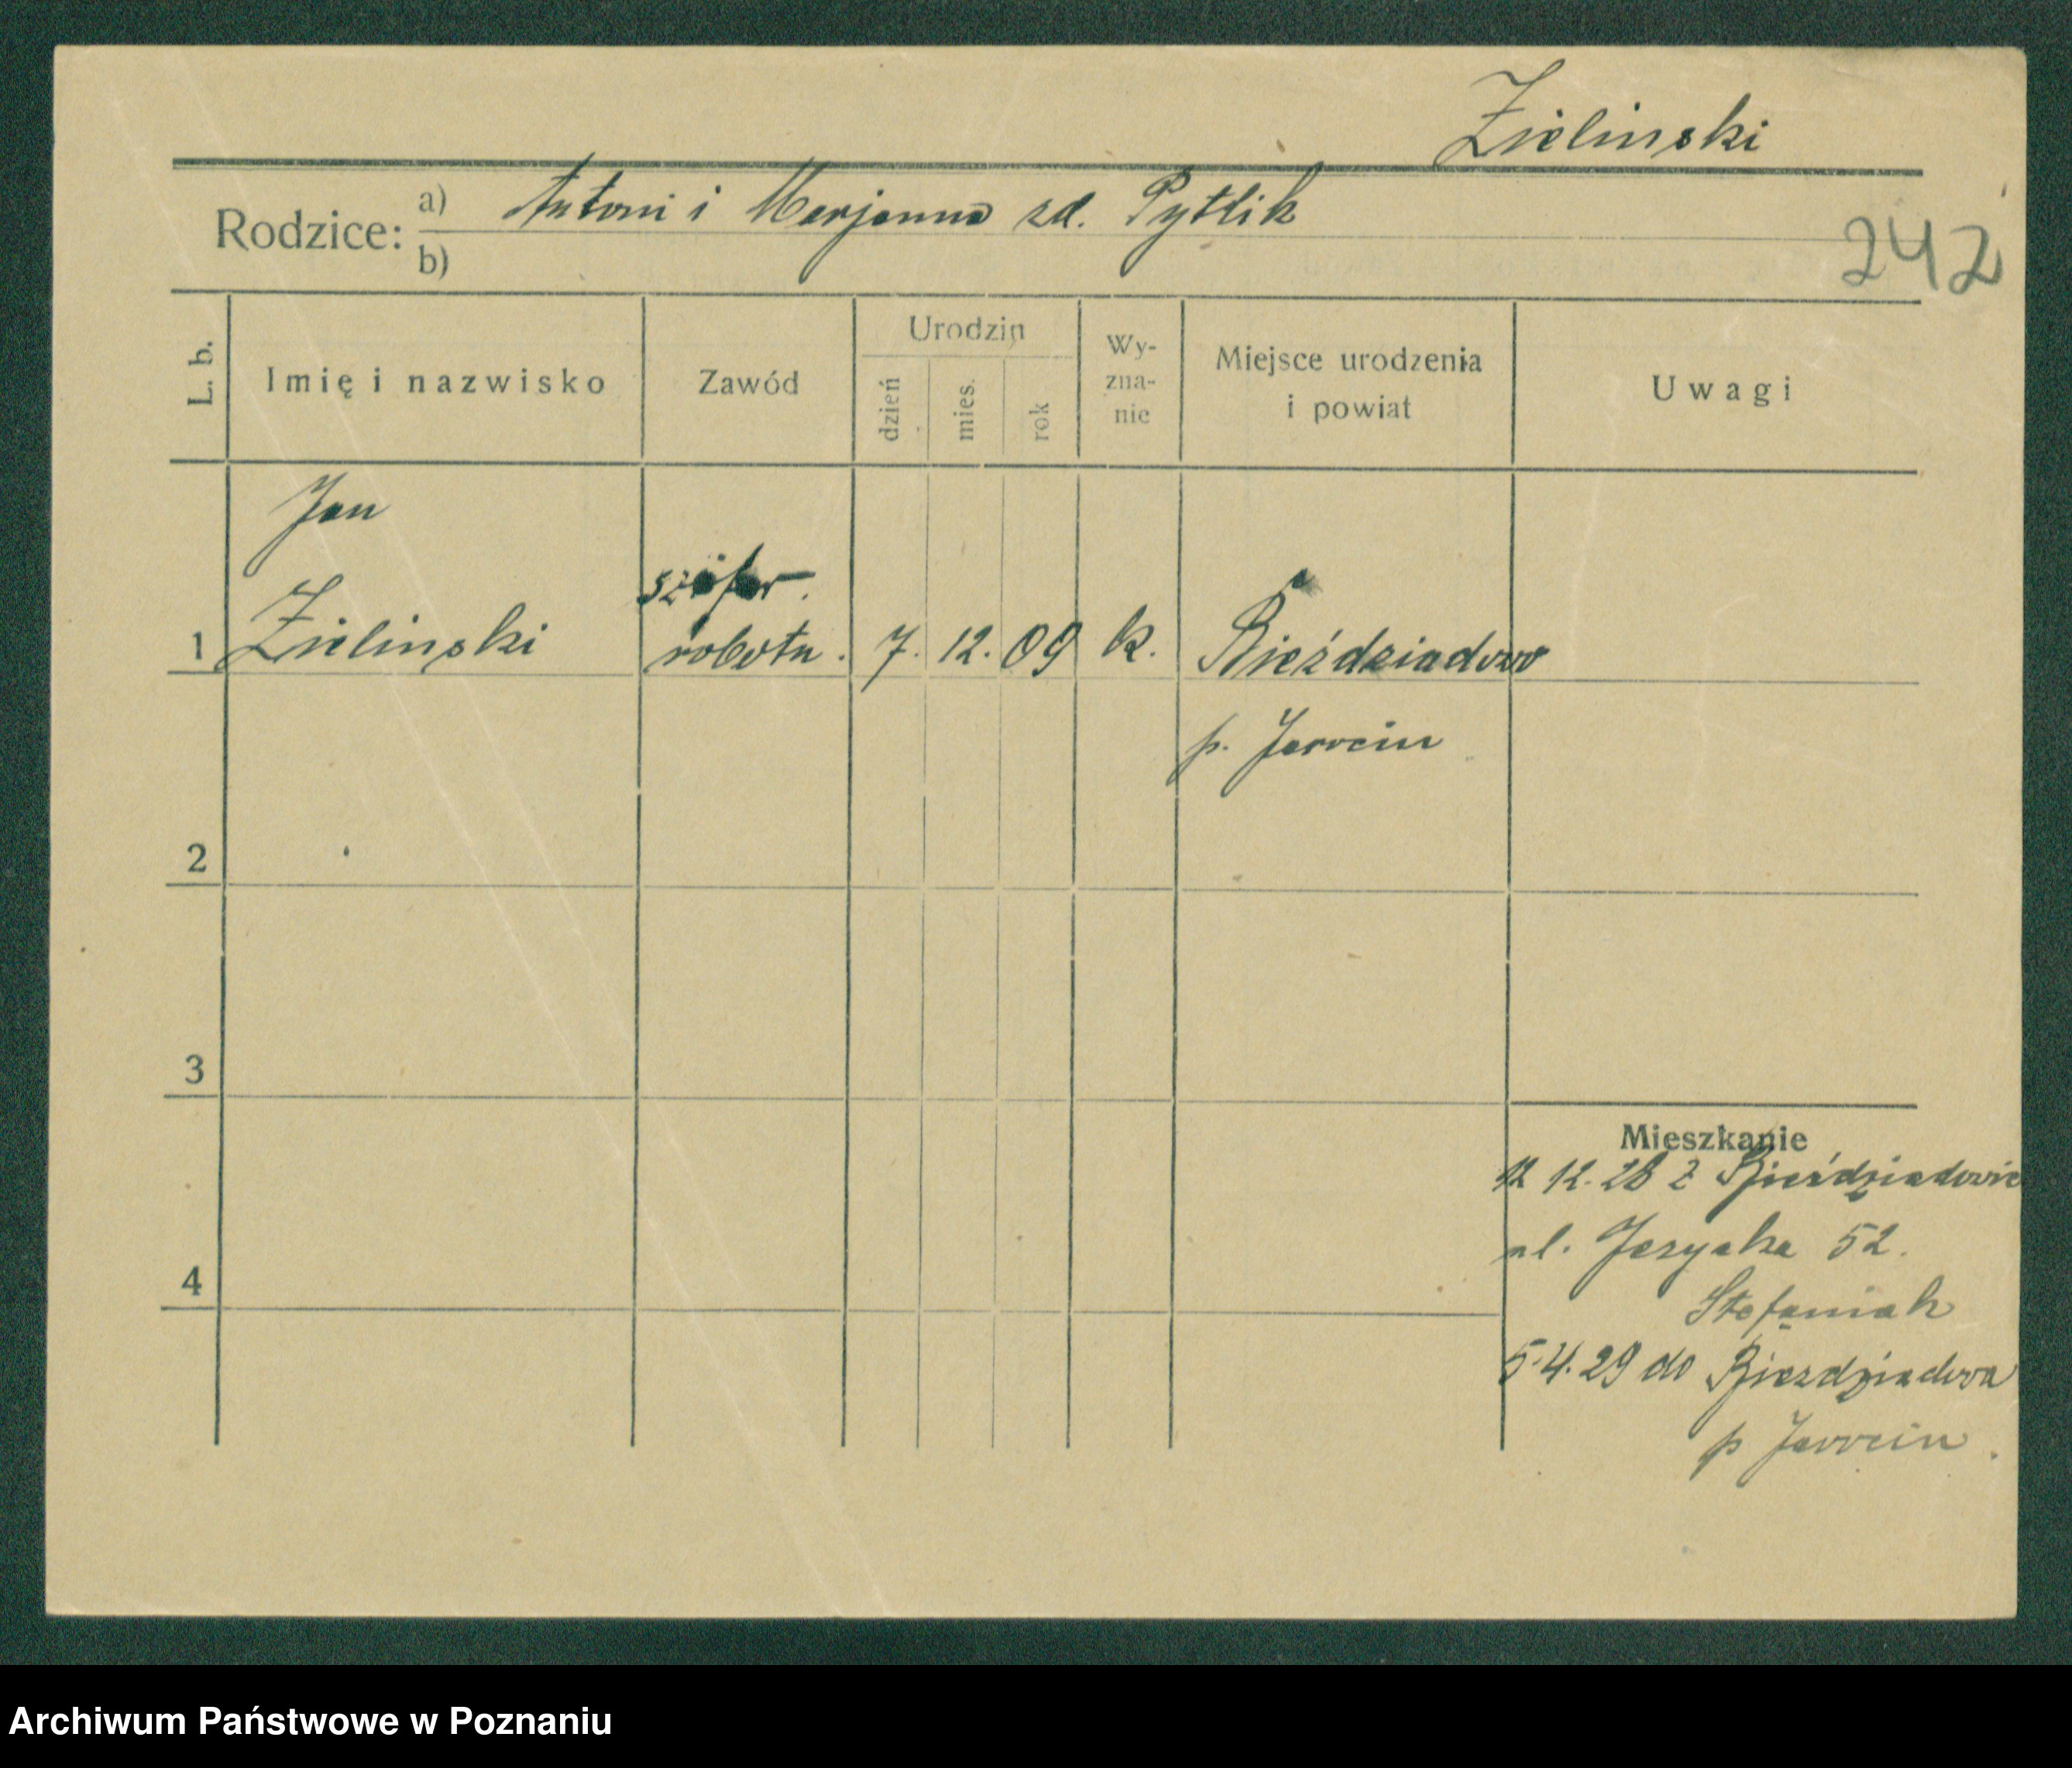 Zielinski
Rodzice: a) Antoni i Marjanna zd. Pytlik
b)
242
L. b.
Imię i nazwisko
Zawód
Urodzin
dzień
mies.
rok
Wy-
zna-
nie
Miejsce urodzenia
i powiat
Uwagi
Jan
szofer.
1 Zielinski robotn. 7. 12. 09 k. Bieździadowo
p. Jarocin
2
3
4
Mieszkanie
12.28 z Bieździadowie
ul. Jezycka 52.
Stefaniak
5.4.29 do Biezdziadowa
p Jarocin.
Archiwum Państwowe w Poznaniu